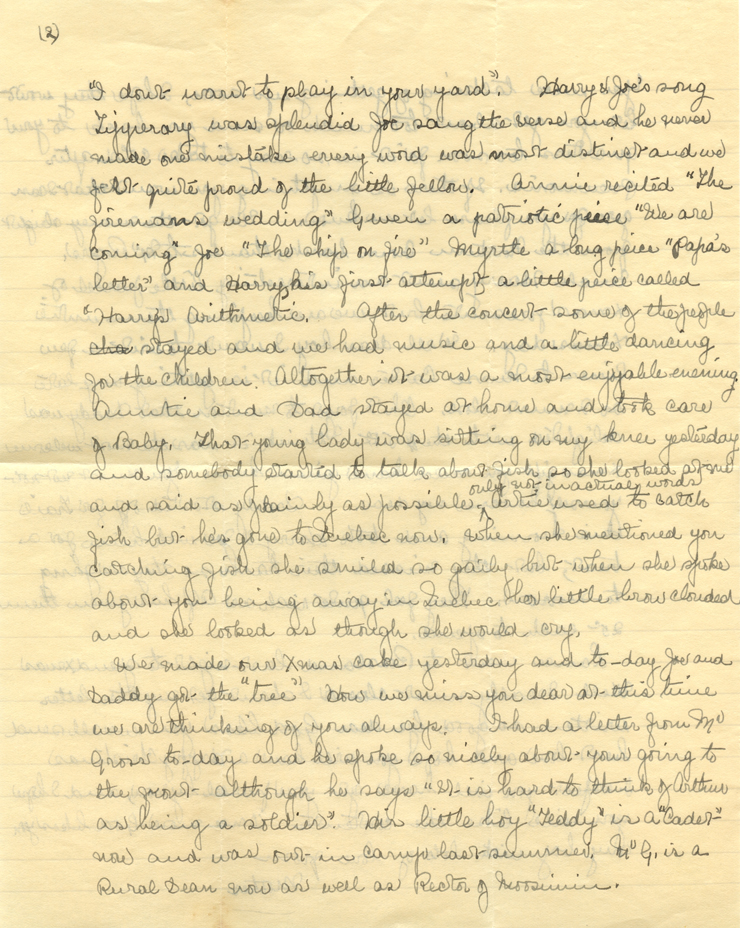 (2)
"I dont want to play in your yard". Harry & Joe's song
Tipperary was splendid Joe sang the verse and he never
made one mistake every word was most distinct and we
felt quite proud of the little fellow. Annie recited "The
firemans wedding" Gwen a patriotic piece "We are
coming" Joe "The ship on fire" Myrtle a long peice "Papa's
letter" and Harry, his first attempt, a little peice called
"Harry's Arithmetic. After the concert some of the people
stayed and we had music and a little dancing
for the children. Altogether it was a most enjoyable evening.
Auntie and Dad stayed at home and took care
of Baby. That young lady was sitting on my knee yesterday
and somebody started to talk about fish so she looked at me
only not in actual words
and said as plainly as possible, Artie used to catch
fish but he's gone to Quebec now. When she mentioned you
catching fish she smiled so gaily but when she spoke
about you being away in Quebec her little brow clouded
and she looked as though she would cry.
We made our Xmas cake yesterday and to-day Joe and
Daddy got the "tree". How we miss you dear at this time
we are thinking of you always. I had a letter from Mr
Gross to-day and he spoke so nicely about your going to
the front although he says "It is hard to think of Arthur
as being a soldier". His little boy "Teddy" is a "Cadet"
now and was out in camp last summer. Mr G. is a
Rural Dean now as well as Rector of Moosimin.